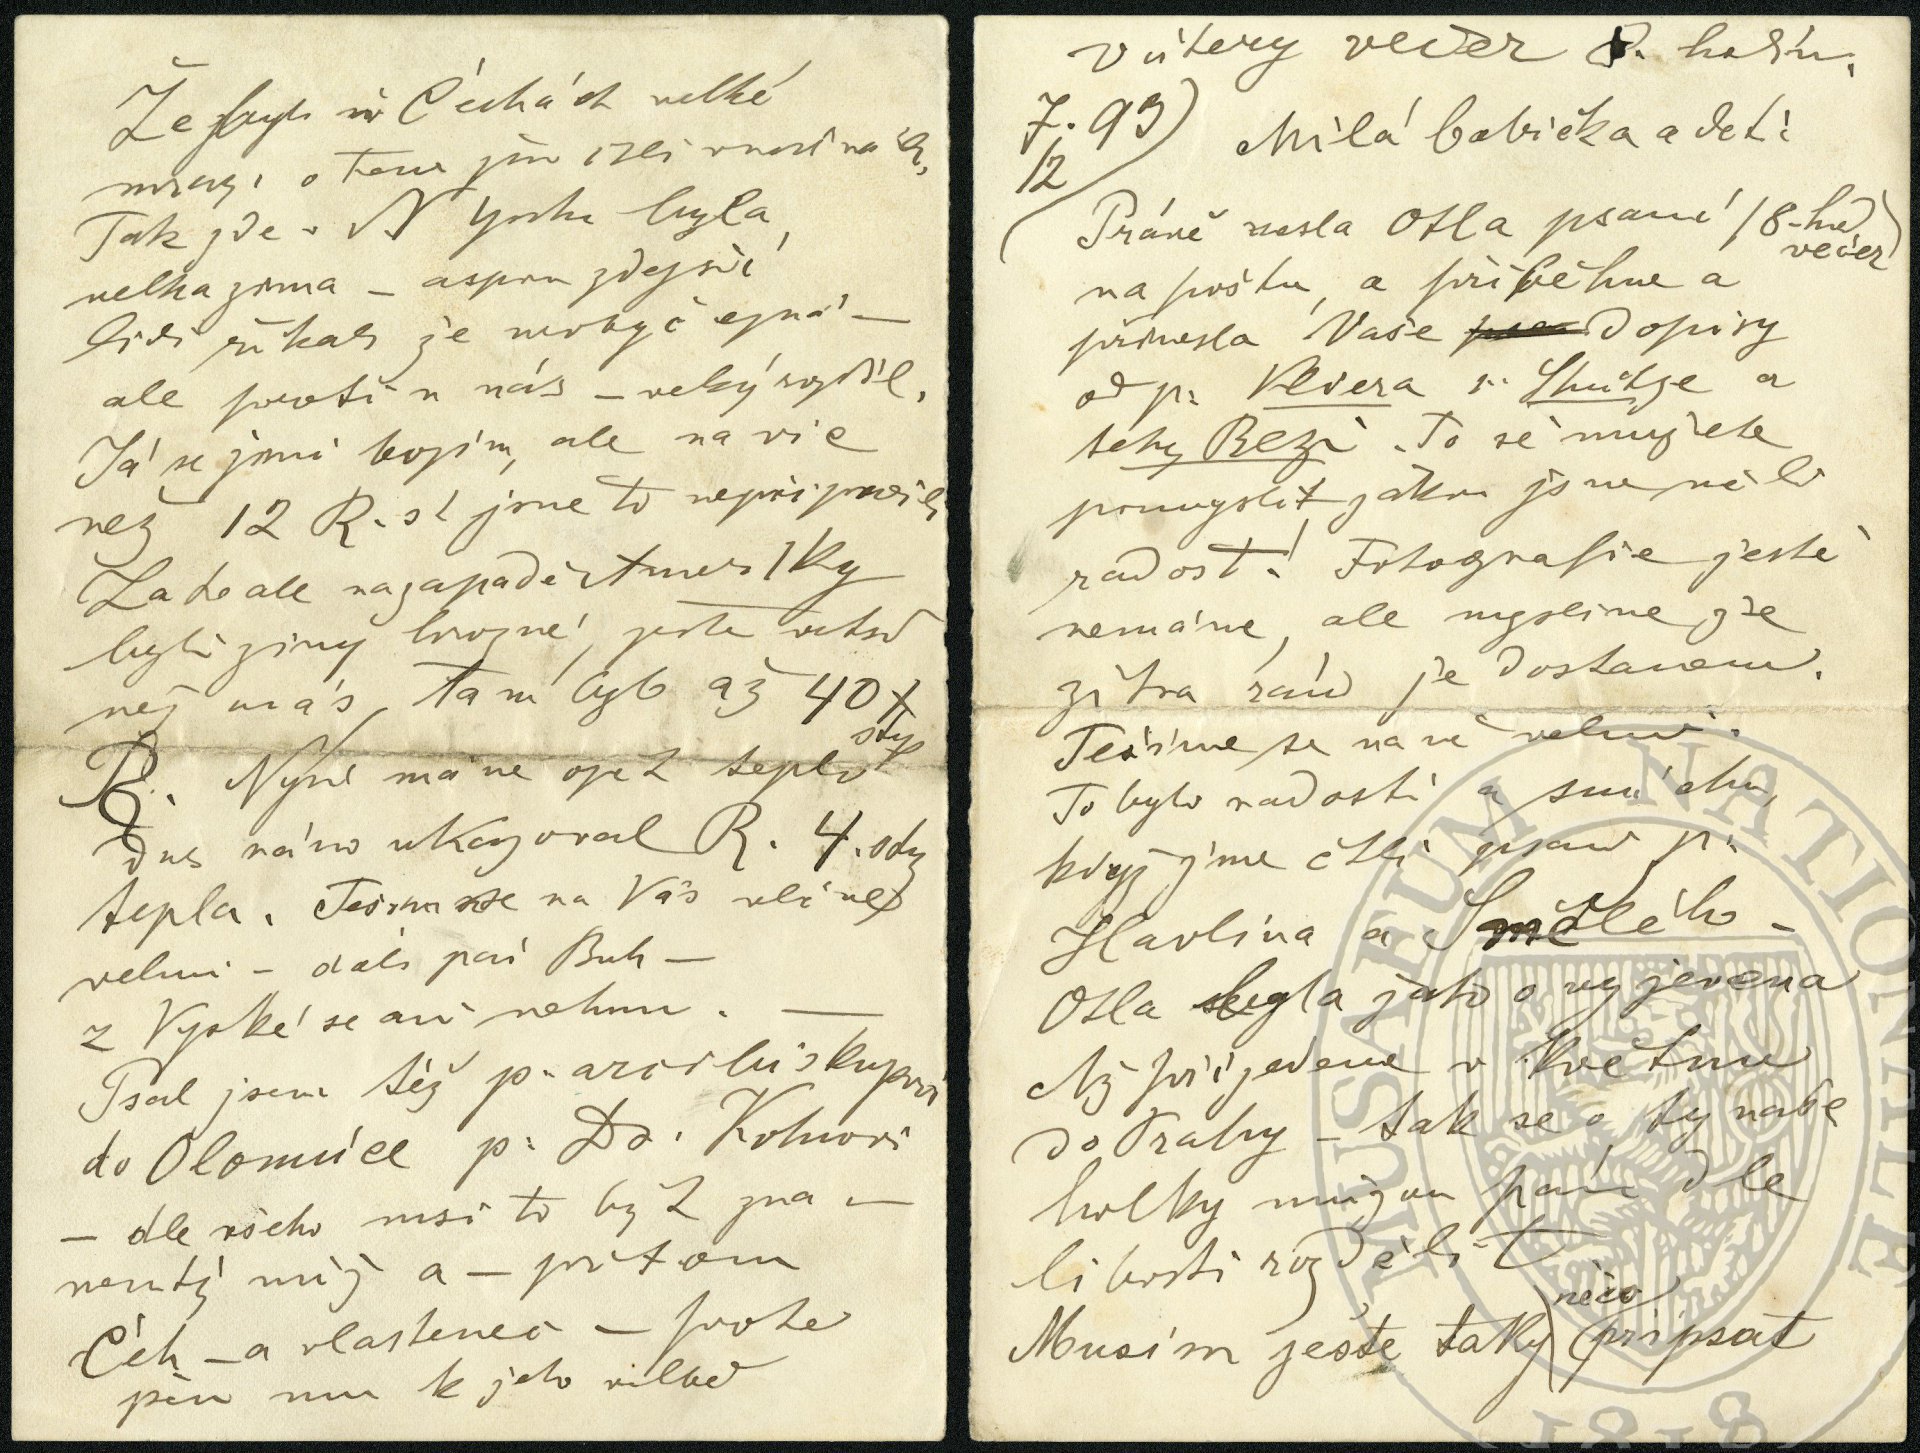 Že byli v Čechách velké
mrazi o tom jsme četli v novinách,
Tak zde v N Yorku byla
velka zima – aspon zdejší
lidi říkali že neobyčejná –
ale proti u nás – velký rozdíl.
Já se zimi bojím, ale na vic
než 12 R. st jsme to nepřipravili
Zato ale na zapadě Ameriky
byli zimy hrozné, jestě vetsi
než u nás, tam bylo až 40 st
R. Nyní máme opět teplo
dnes ráno ukazoval R. 4. sty
teplα. Tesim se na Vás
velmi – dáli pán Buh –
z Vysoké se ani nehnu. —
Psal jsem též p. arcibiskupovi
do Olomúce p: Dr. Kohnovi
– dle všeho musi to byt zna –
menitý muž a – přitom
Čech – a vlastenec – proto
pěju mu k jeho volbě
V úterý večer 8. hodin.
7. 93)
12
Milá babička a děti
Práve nesla Otla psaní / 8 hod
večer
na poštu, a přiběhne a
přinesla Vaše dopisy
od p: Kličra a
tety Rezi. To sé mužete
pomyslit jakou jsme měli
radost! Fotografie jestě
nemáme, ale myslime že
zitra ráno je dostaneme.
Tešíme se na ně velmi.
To bylo radosti a smíchu,
když jsme četli psaní p:
Havlína a Smělého –
Otla byla jako o vyjevena
Až přijedeme v květnu
do Prahy – tak se o ty naše
holky mužou páni dle
libosti rozdělit
něco
Musim ještě taky připsat
MUSAEUM NATIONALE
1818